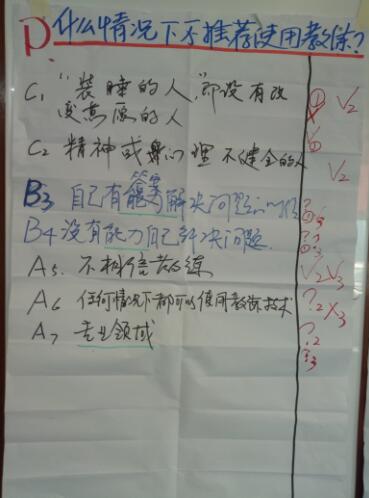 D. 什么情况下不推荐使用教练？
C1 "装睡的人"即没有改
变意愿的人
C2 精神或身心理不健全的人
B3 自己有能力解决问题的
答案
B4 没有能力自己解决问题.
A5. 不相信教练
A6 任何情况下都可以使用教练技术
A7 专业领域
① √2
√2
√2 √3
?.2 ×3
?.2